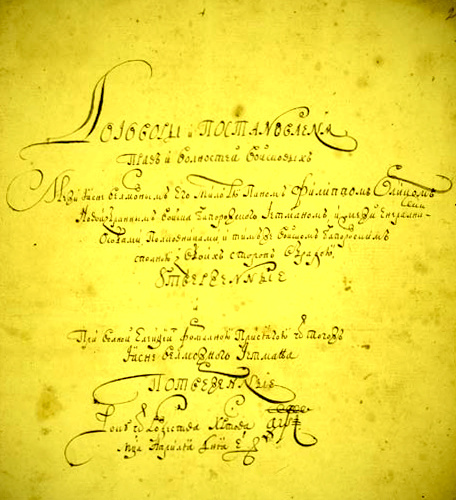 Договоры и Постановленя
Правъ и волностей Войсковыхъ
Межи Ясне велможнымъ Его Милостю Паномъ Филиппомъ Орликомъ
Новоизбраннымъ Войска Запорозкого Гетманомъ, и межи Енералными
Особами, Полковниками и тимъ же Войскомъ Запорозкимъ
сполною з обоихъ сторонъ обрадою
Утверженные
и
При волной Елекцыей формалною Присягою ѿ тогожъ
Ясне велможного Гетмана
Потверженные
Року ѿ Рождества Христова аѱі
мца Априля дня е҃